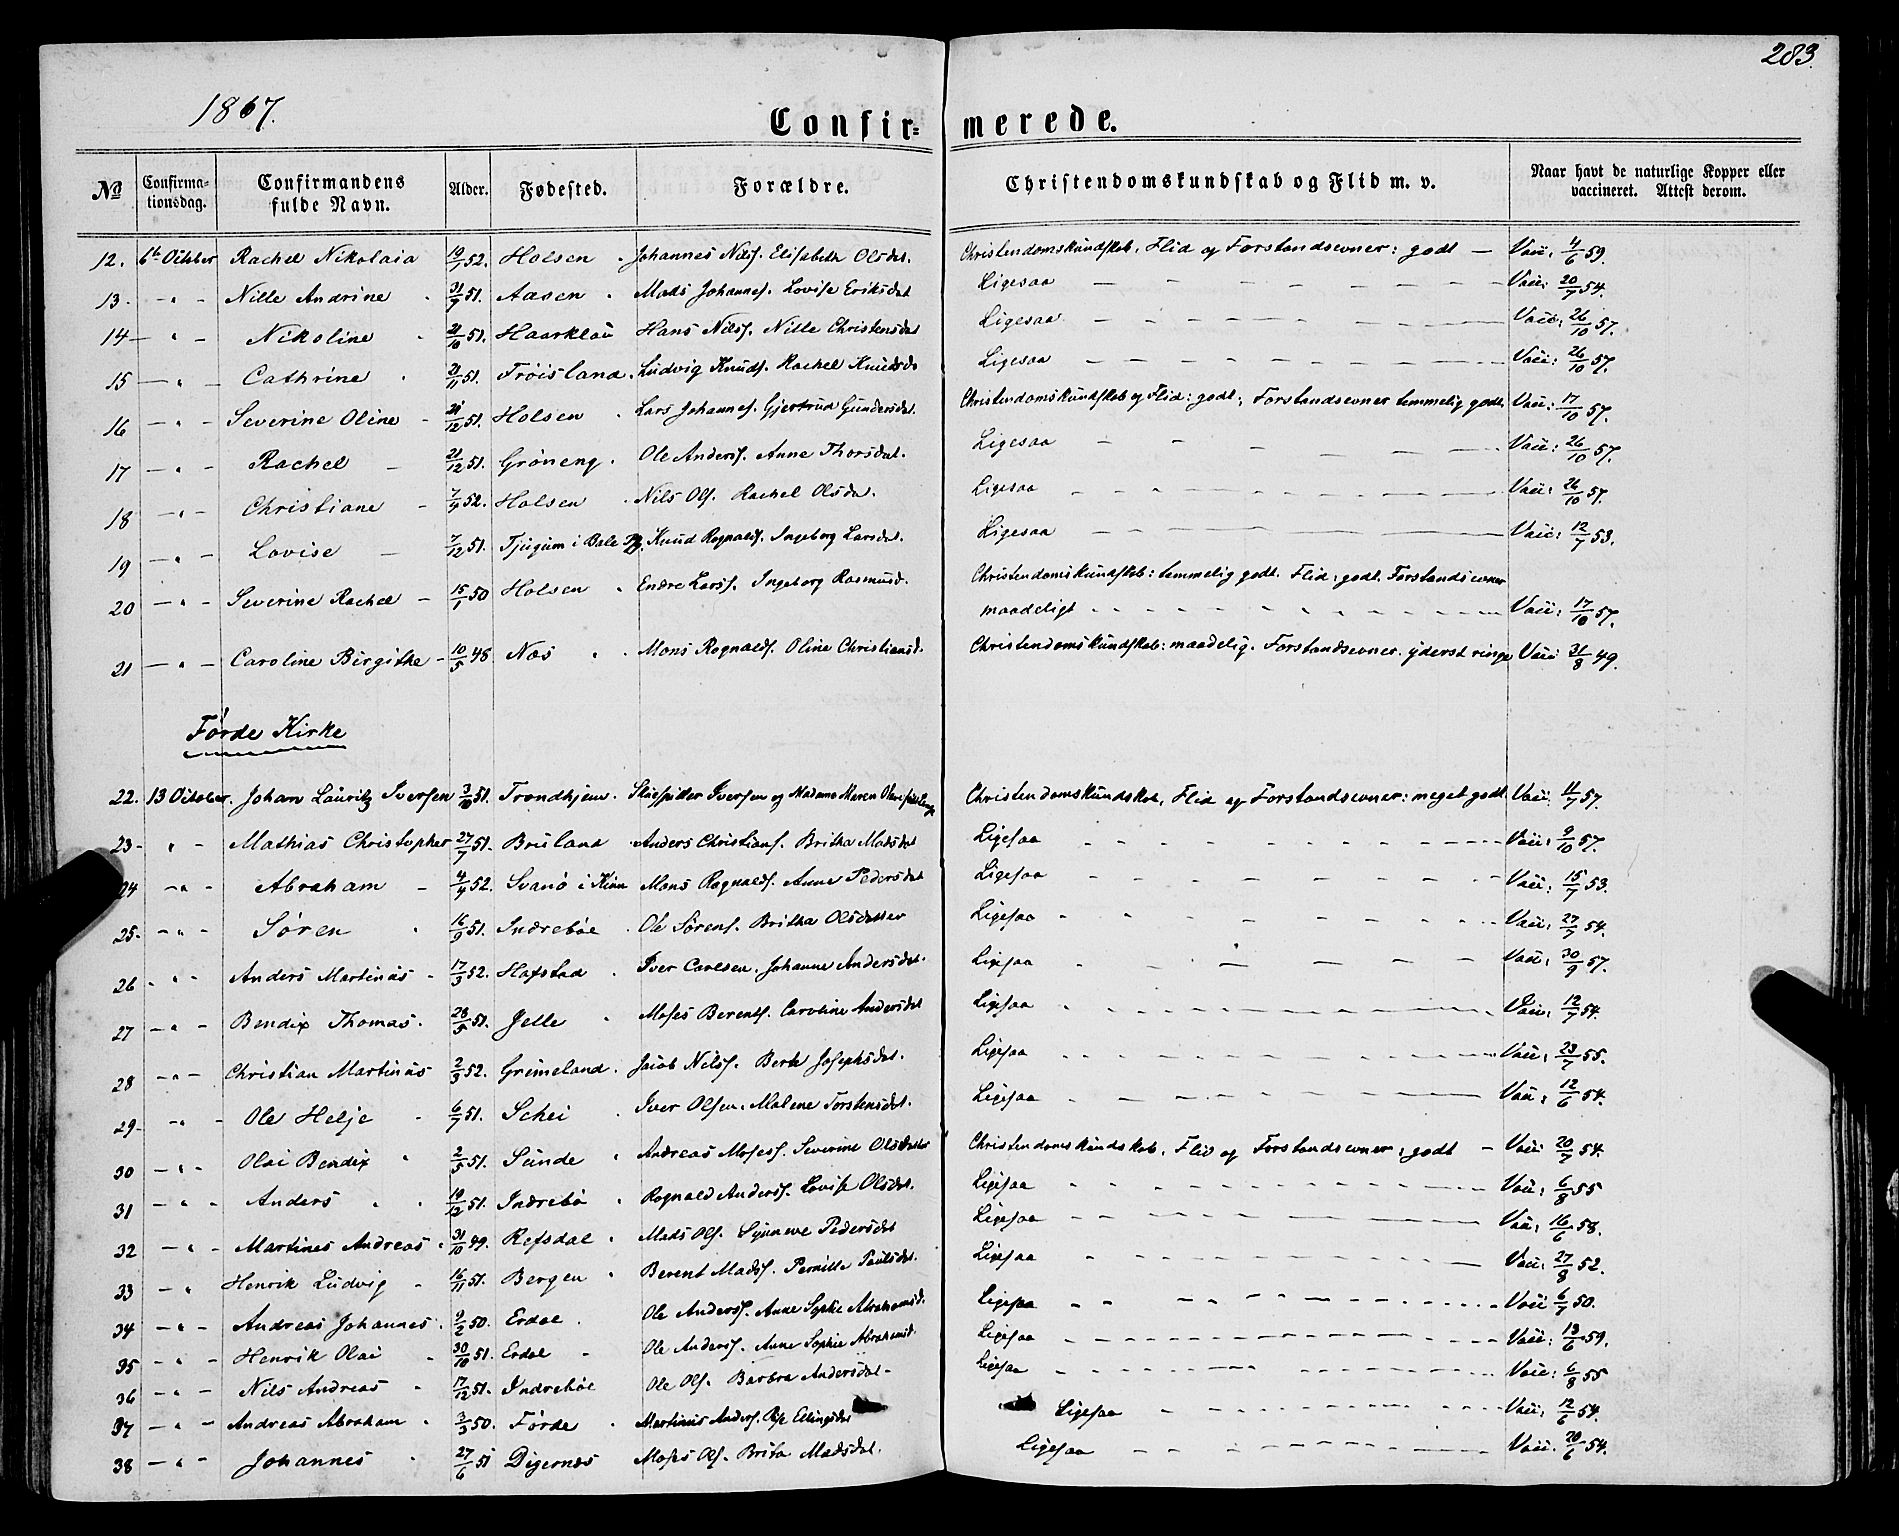 283.
1867.
Confir= merede.
No Confirma- tionsdag. Confirmandens fulde Navn. Alder. Fødested. Forældre. Christendomskundskab og Flid m. v. Naar havt de naturlige Kopper eller vaccineret. Attest derom.
12. 6te October Rachel Nikolaia 19/1 52. Holsen Johannes Nilss. Elisabeth Olsdat. Christendomskundskab, Flid og Forstandsevner: godt — Vacc: 4/6 59.
13. - " - Nille Andrine 31/7 51. Aasen Mads Johannes. Lovise Eriksdat Ligesaa Vacc: 20/7 54.
14 - " - Nikoline 21/10 51. Haarklau Hans Nilss. Nille Christensdat Ligesaa Vacc: 26/10 57.
15 - " - Cathrine 21/11 51. Trøisland. Ludvig Knuds. Rachel Knudsd. Ligesaa Vacc: 26/10 57.
16 - " - Severine Oline 21/12 51. Holsen Lars Johannes. Gjertrud Gundersdat. Christendomskundskab og Flid: godt; Forstandsevner temmelig godt. Vacc: 17/10 57.
17 - " - Rachel 21/12 51. Grøneng. Ole Anderss. Anne Thorsdat. Ligesaa Vacc: 26/10 57.
18 - " - Christiane 7/4 52. Holsen Nils Ols. Rachel Olsda. Ligesaa Vacc: 26/10 57.
19 - " - Lovise 7/12 51. Tjugum i Bale Knud Rognalds. Ingeborg Larsdat. Ligesaa Vacc: 12/7 53.
20 - " - Severine Rachel 15/1 50 Holsen Endre Larss. Ingeborg Rasmusd. Christendomskundskab: temmelig godt. Flid: godt. Forstandsevner
maadeligt Vacc: 17/10 57.
21 - " - Caroline Birgithe 10/5 48 Nas Mons Rognalds. Oline Christiansd. Christendomskundskab: maadelig. Forstandsevner yderst ringe Vacc 31/8 49.
Førde Kirke
22. 13 October. Johan Lauritz Iversen 3/10 51. Trondhjem. Skuespiller Iversen og Madame Maren Christendomskundskab, Flid og Forstandsevner: meget godt Vacc. 11/7 57.
23 - " - Mathias Christopher 27/7 51. Bruland Anders Christians. Britha Madsdat Ligesaa Vacc: 9/10 57.
24 - " - Abraham 4/4 52. Svanø i Kinn Mons Rognalds. Anne Pedersdat Ligesaa Vacc: 15/7 53.
25 - " - Søren 16/9 51. Indrebøe Ole Sørens. Britha Olsdatter Ligesaa Vacc: 27/7 54.
26 - " - Anders Martinus 17/3 52. Hafstad Iver Carlsen. Johanne Andersdat. Ligesaa Vacc: 30/9 57.
27 - " - Bendix Thomas. 28/5 51. Jelle Moses Berents. Caroline Andersdat Ligesaa Vacc: 12/7 54.
28 - " - Christian Martinus 2/3 52. Grimeland. Jacob Nilss. Berte Josephsdat. Ligesaa Vacc: 23/7 55.
29 - " - Ole Helje 6/7 51. Schei Iver Olsen. Malene Torstensdat. Ligesaa Vacc: 12/6 54.
30 - " - Olai Bendix 2/5 51. Sunde Andreas Moses. Severine Olsdatter Christendomskundskab, Flid og Forstandsevner: godt — Vacc 20/7 54.
31 - " - Anders 19/12 51. Indrebø Rognald Anderss. Lovise Olsdat. Ligesaa Vacc: 6/8 55
32 - " - Martines Andreas. 31/10 49. Refsdal Mads Ols. Synneve Pedersdat Ligesaa Vacc: 16/6 58.
33 - " Henrik Ludvig 16/11 51. Bergen Berent Madss. Pernille Poulsdat. Ligesaa Vacc: 27/8 52.
34 - " - Andreas Johannes. 9/2 50. Erdal. Ole Anderss. Anne Sophie Abrahamsd. Ligesaa Vacc 6/7 50.
35 - " - Henrik Olai 30/10 51. Erdal Ole Anderss. Anne Sophie Abrahamsd. Ligesaa Vacc: 13/6 59.
36 - " - Nils Andreas 17/12 51. Indrebøe Ole Ols. Barbra Andersdat. Ligesaa Vacc: 6/8 55
37 - " - Andreas Abraham 3/3 50. Førde Martinus Anders. Ellingsdat Ligesaa Vacc: 12/6 54.
38 - " - Johannes 27/6 51 Digernæs Moses Ols. Brita Madsdat. Ligesaa Vacc. 20/6 54.